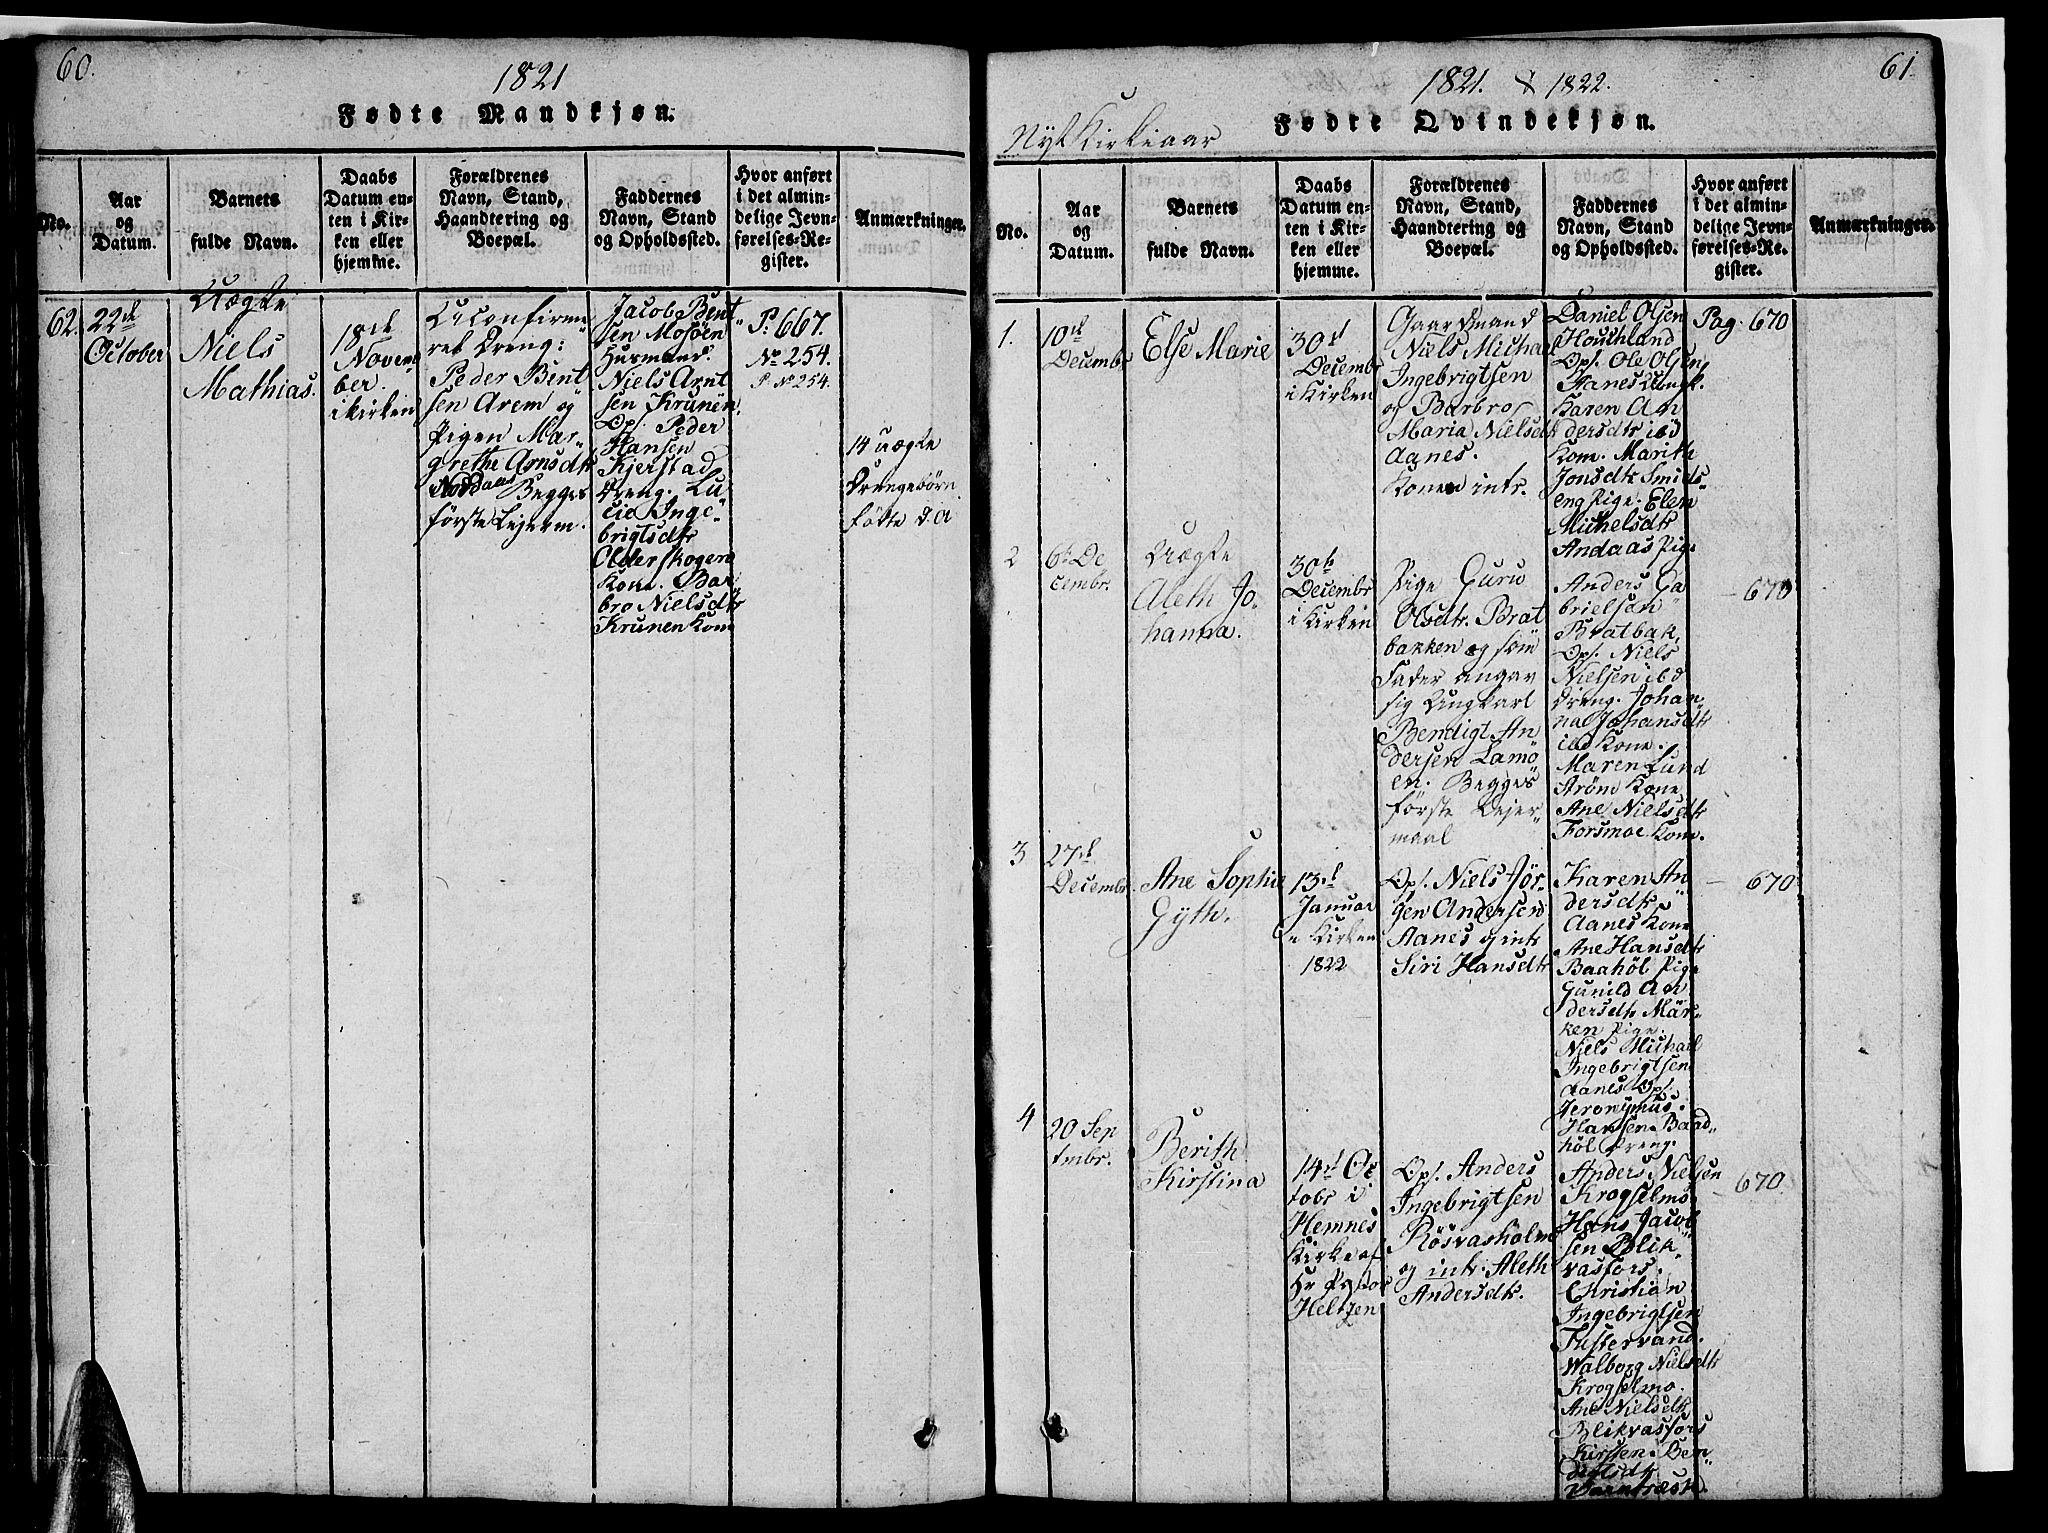 60.
1821
Fødte Mandkjøn.
No.
Aar
og
Datum.
Barnets
fulde Navn.
Daabs
Datum en-
ten i Kir-
ken eller
hjemme.
Forældrenes
Navn, Stand,
Haandtering og
Boepæl.
Faddernes
Navn, Stand
og Opholdssted.
Hvor anført
i det almin-
delige Jevn-
førelses-Re-
gister.
Anmærkninger.
62.
22de
October
Uægte
Niels
Mathias.
18de
Novem
ber.
i Kirken
Uconfirme
ret Dreng:
Peder Bent
sen Arem og
Pigen Mar-
grethe Arnsdtr
Begges
første Lejerm.
Jacob Bent
sen Mosøen
Huusmand.
Niels Arnt
sen Krunen
Ops. Peder
Hansen
Kjerstad
Dreng. Lu-
cie Inge-
brigtsdtr
Olderskogen
Kone. Bar
bro Nielsdtr
Krunen Kone
P. 667.
No 254.
P. No 254.
14 uægte
Drengebørn
fødte d. A
61.
1821. & 1822.
Nyt Kirkeaar
Fødte Qvindekjøn.
No.
Aar
og
Datum.
Barnets
fulde Navn.
Daabs
Datum en-
ten i Kir-
ken eller
hjemme.
Forældrenes
Navn, Stand,
Haandtering og
Boepæl.
Faddernes
Navn, Stand
og Opholdssted.
Hvor anført
i det almin-
delige Jevn-
førelses-Re-
gister.
Anmærkninger.
1.
10de
Decembr
Else Marie
30de
Decembr
i Kirken
Gaardmand
Niels Michael
Ingebrigtsen
og Barbro
Maria Nielsdtr
Aanes.
Konen intr.
Daniel Olsen
Houthland
Ops. Ole Olsen
Aanes Ungk.
Karen An
dersdtr ibd
Kone. Marith
Jonsdtr Smids-
eng Pige. Elen
Michelsdtr
Andaas Pige
Pag. 670
2
6te De
cembr.
Uægte
Aleth Jo-
hanna.
30te
Decembr
i Kirken
Pige Guru
Olsdtr. Brat
bakken og som
Fader angav
sig Ungkarl
Bendigt An
dersen Lamø
en. Begges
første Lejer-
maal
Anders Ga
brielsen
Bratbak.
Ops. Niels
Nielsen ibd
Dreng. Johan-
na Johansdtr
ibd Kone.
Maren Lund
Strøm Kone
Ane Nielsdtr
Forsmoe Kone.
670
3
27de
Decembr.
Ane Sophie
Gyth.
13de
Januar
i Kirken
1822
Ops. Niels Jør-
gen Andersen
Aanes og intr
Siri Hansdtr
Karen An
dersdtr
Aanes Kone
Ane Hansdtr
Baahøl Pige
Gunild An
dersdtr Mär-
ken Pige.
Niels Michael
Ingebrigtsen
Aanes Ops.
Jeronymus.
Hansen Baad-
høl Dreng.
670
4
20 Sep
tmbr.
Berith
Kirstina
14de Oc
tobr i
Hemnes
Kirke af
Hr Pastor
Heltzen
Ops. Anders
Ingebrigtsen
Røsvasholm
og intr. Aleth
Andersdtr.
Anders Nielsen
Krogselmo
Hans Jacob
sen Blik-
vasfors.
Christian
Ingebrigtsen
Tustervand.
Walborg Nielsdtr
Krogselmo.
Ane Nielsdtr
Blikvasfors
Kirsten Ben-
670